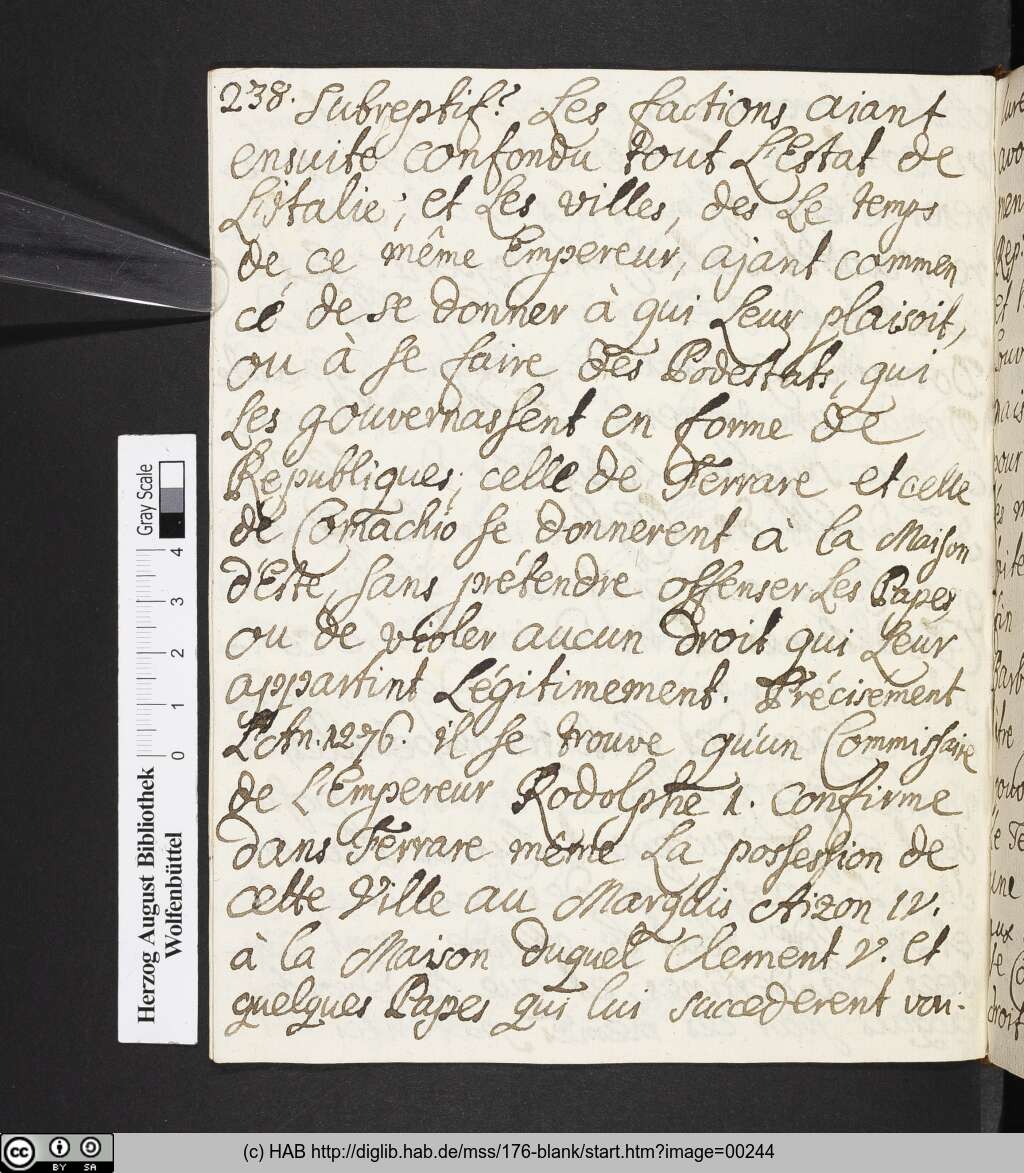 238. Subreptif? Les factions aiant
ensuite confondu tout L'Estat de
L'Italie; et Les villes, des Le temps
de ce même Empereur, ajant commen
cé de se donner à qui Leur plaisoit,
ou à se faire des Podestats, qui
Les gouvernassent en forme de
Republiques; celle de Ferrare et celle
de Comachio se donnerent à la Maison
d'Este, sans prétendre offenser Les Papes
ou de violer aucun droit qui Leur
appartint Légitimement. Précisement
L'An. 1276. il se trouve qu'un Commissaire
de L'Empereur Rodolphe 1. confirme
dans Ferrare même La possession de
cette Ville au Marquis Aizon IV.
à la Maison duquel Clement V. et
quelques Papes qui lui succederent vou-
Gray Scale
0 1 2 3 4
Herzog August Bibliothek
Wolfenbüttel
cc BY SA
(c) HAB http://diglib.hab.de/mss/176-blank/start.htm?image=00244